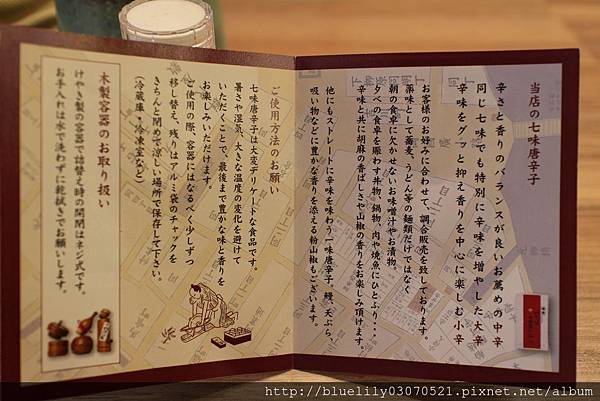 当店の七味唐辛子
辛さと香りのバランスが良いお薦めの中辛
同じ七味でも特別に辛味を増やした大辛
辛味をグッと抑え香りを中心に楽しむ小辛
お客様のお好みに合わせて、調合販売を致しております。
薬味として蕎麦、うどん等の麺類だけではなく
朝の食卓に欠かせないお味噌汁やお漬物。
夕べの食卓を賑わす丼物、鍋物、肉や焼魚にひとふり・・・
辛味と共に胡麻の香ばしさや山椒の香りをお楽しみ頂けます。
他にもストレートに辛味を味わう一味唐辛子、鰻、天ぷら、
吸い物などに豊かな香りを添える粉山椒もございます。
ご使用方法のお願い
七味唐辛子は大変デリケートな食品です。
暑さや湿気、大きな温度の変化を避けて
いただくことで、最後まで豊かな味と香りを
お楽しみいただけます。
ご使用の際、容器にはなるべく少しずつ
移し替え、残りはアルミ袋のチャックを
きちんと閉めて涼しい場所で保存して下さい。
(冷蔵庫・冷凍室など)
木製容器のお取り扱い
けやき製の容器で詰替え時の開閉はネジ式です。
お手入れは水で洗わずに乾拭きでお願いします。
http://bluelily03070521.pixnet.net/album